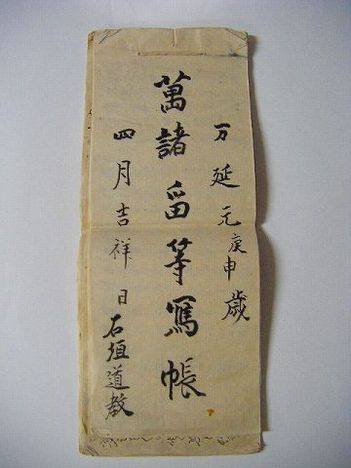 万延元庚申歳
萬諸留等寫帳
四月吉祥日
石垣道教